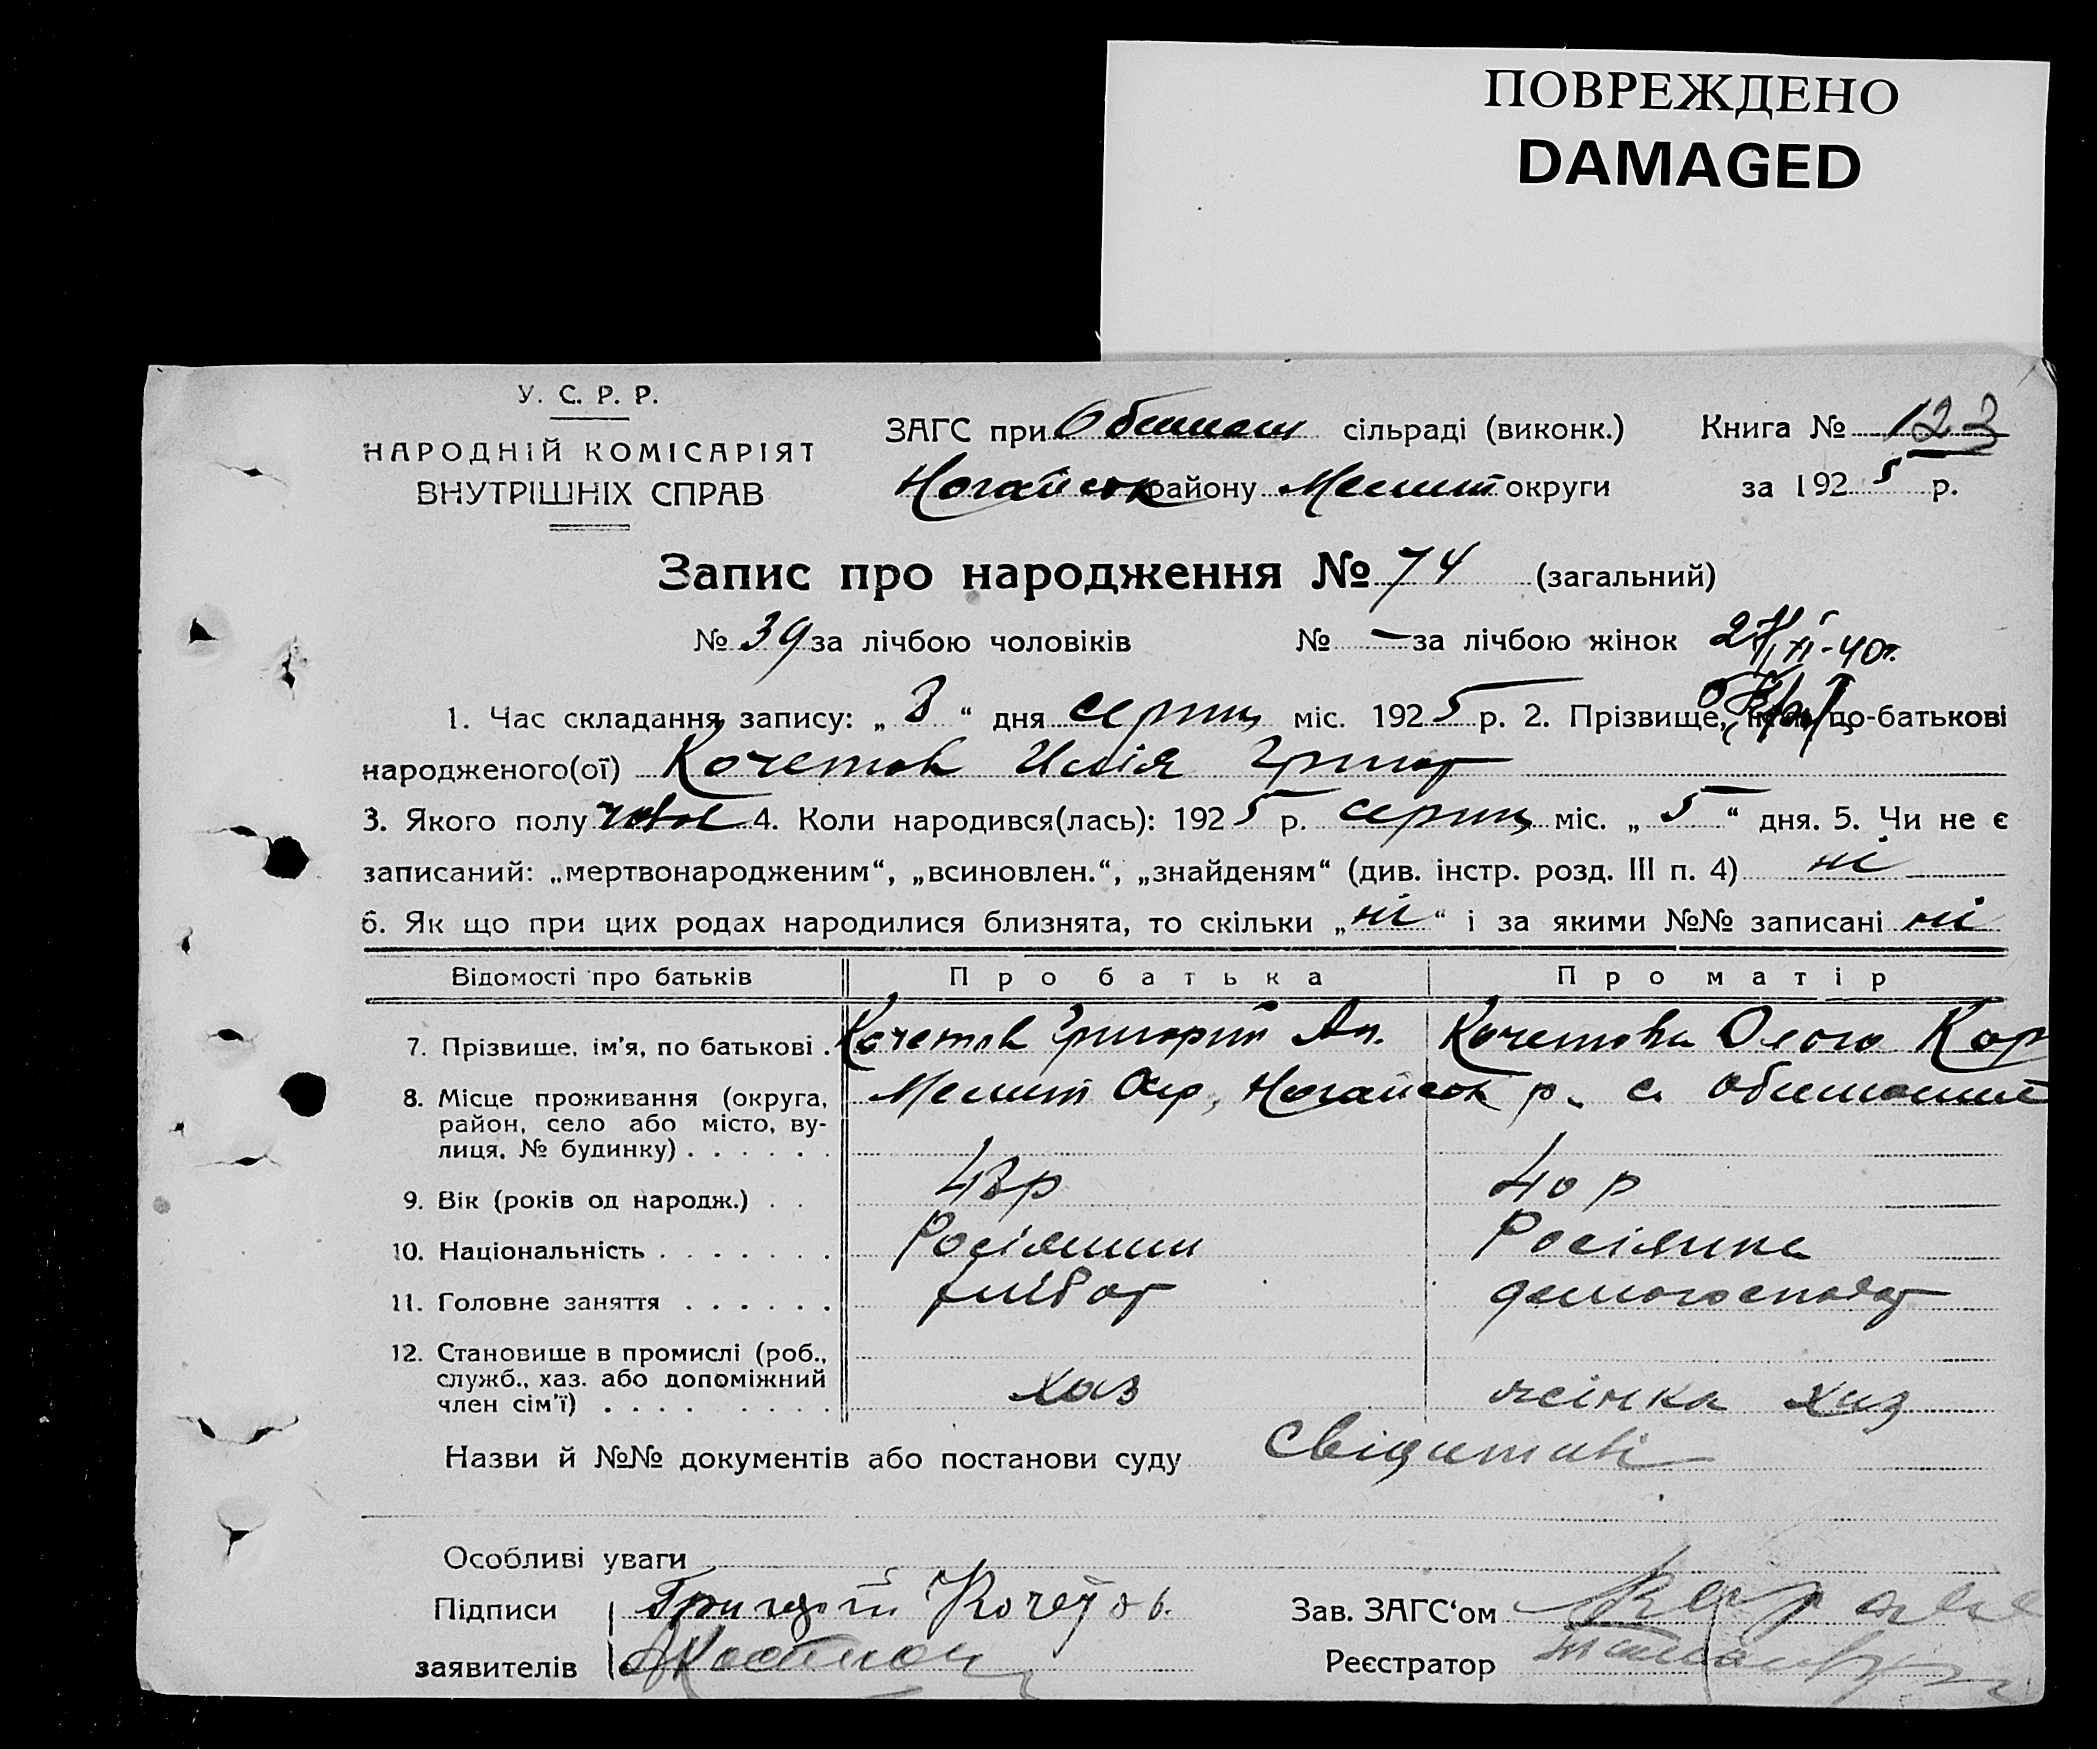 ПОВРЕЖДЕНО
DAMAGED
У. С. Р. Р.
НАРОДНІЙ КОМІСАРІЯТ
ВНУТРІШНІХ СПРАВ
ЗАГС при сільраді (виконк.) Книга № 123
Ногайськ району Мелит округи за 1925 р.
Запис про народження № 74 (загальний)
№ 39 за лічбою чоловіків № — за лічбою жінок
1. Час складання запису: „ 8 “ дня серпн міс. 1925 р. 2. Прізвище, по-батькові
народженого(ої) Кочетов Илія Григор
3. Якого полу чолов 4. Коли народився(лась): 1925 р. серпн міс. „ 5 “ дня. 5. Чи не є
записаний: „мертвонародженим“, „всиновлен.“, „знайденям“ (див. інстр. розд. III п. 4) ні
6. Як що при цих родах народилися близнята, то скільки „ ні “ і за якими №№ записані ні
Відомості про батьків Про батька Про матір
7. Прізвище, ім'я, по батькові . Кочетов Григорій Ан. Кочетова Кор
8. Місце проживання (округа, Мелит Окр, Ногайськ р. с.
район, село або місто, ву-
лиця, № будинку) . . . . . .
9. Вік (років од народж.) . . 43р 40 р
10. Національність . . . . . . . Росіянин Росіянка
11. Головне заняття . . . . . . хлібор домогосподар
12. Становище в промислі (роб.,
служб., хаз. або допоміжний хаз жінка хаз
член сім'ї) . . . . . . . .
Назви й №№ документів або постанови суду
Особливі уваги
Підписи Григорій Кочетов. Зав. ЗАГС‘ом
заявителів Реєстратор